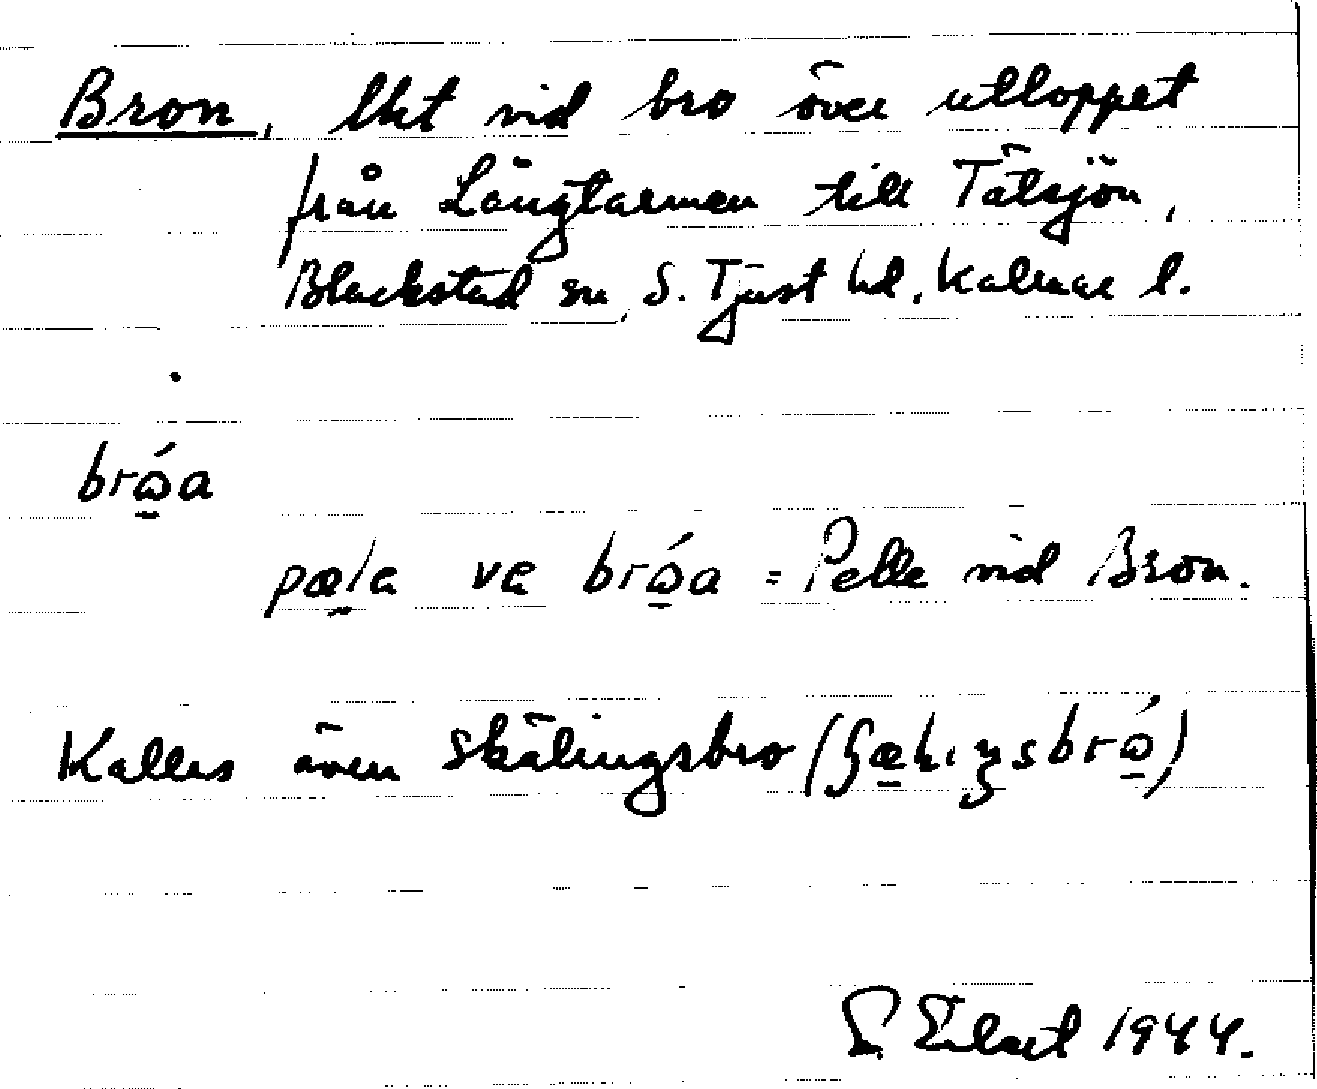 Bron, lht vid bro över utloppet
från Långtarmen till Tätsjön,
Blackstad sn, S. Tjust hd, Kalmar l.
brώ̱a
pæ̱la va brώ̱a = Pelle vid Bron.
Kallas även Skälingsbro
1944.